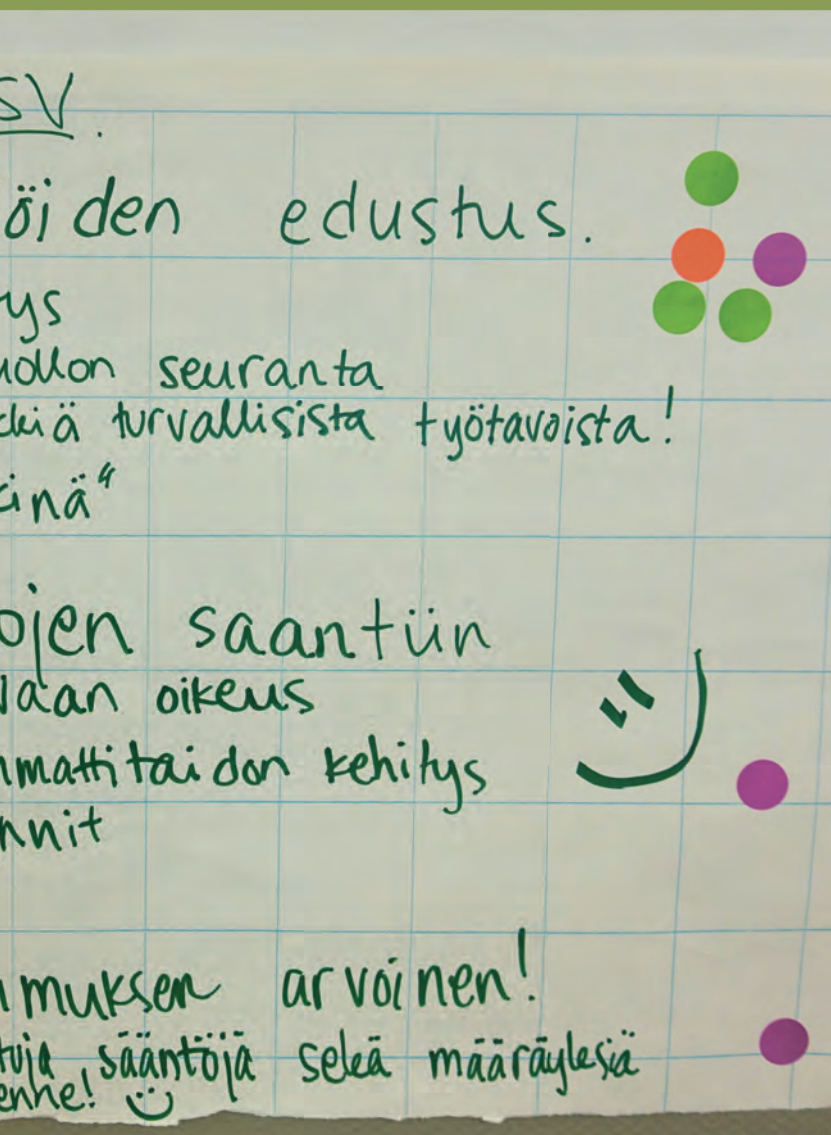 SV.
öiden edustus.
ys
uollon seuranta
kkiä turvallisista työtavoista!
inä"
ojen saantiin
laan oikeus
mmattitaidon kehitys
nnit
muksen arvoinen!
tuja, sääntöjä sekä määräyksiä
enne!